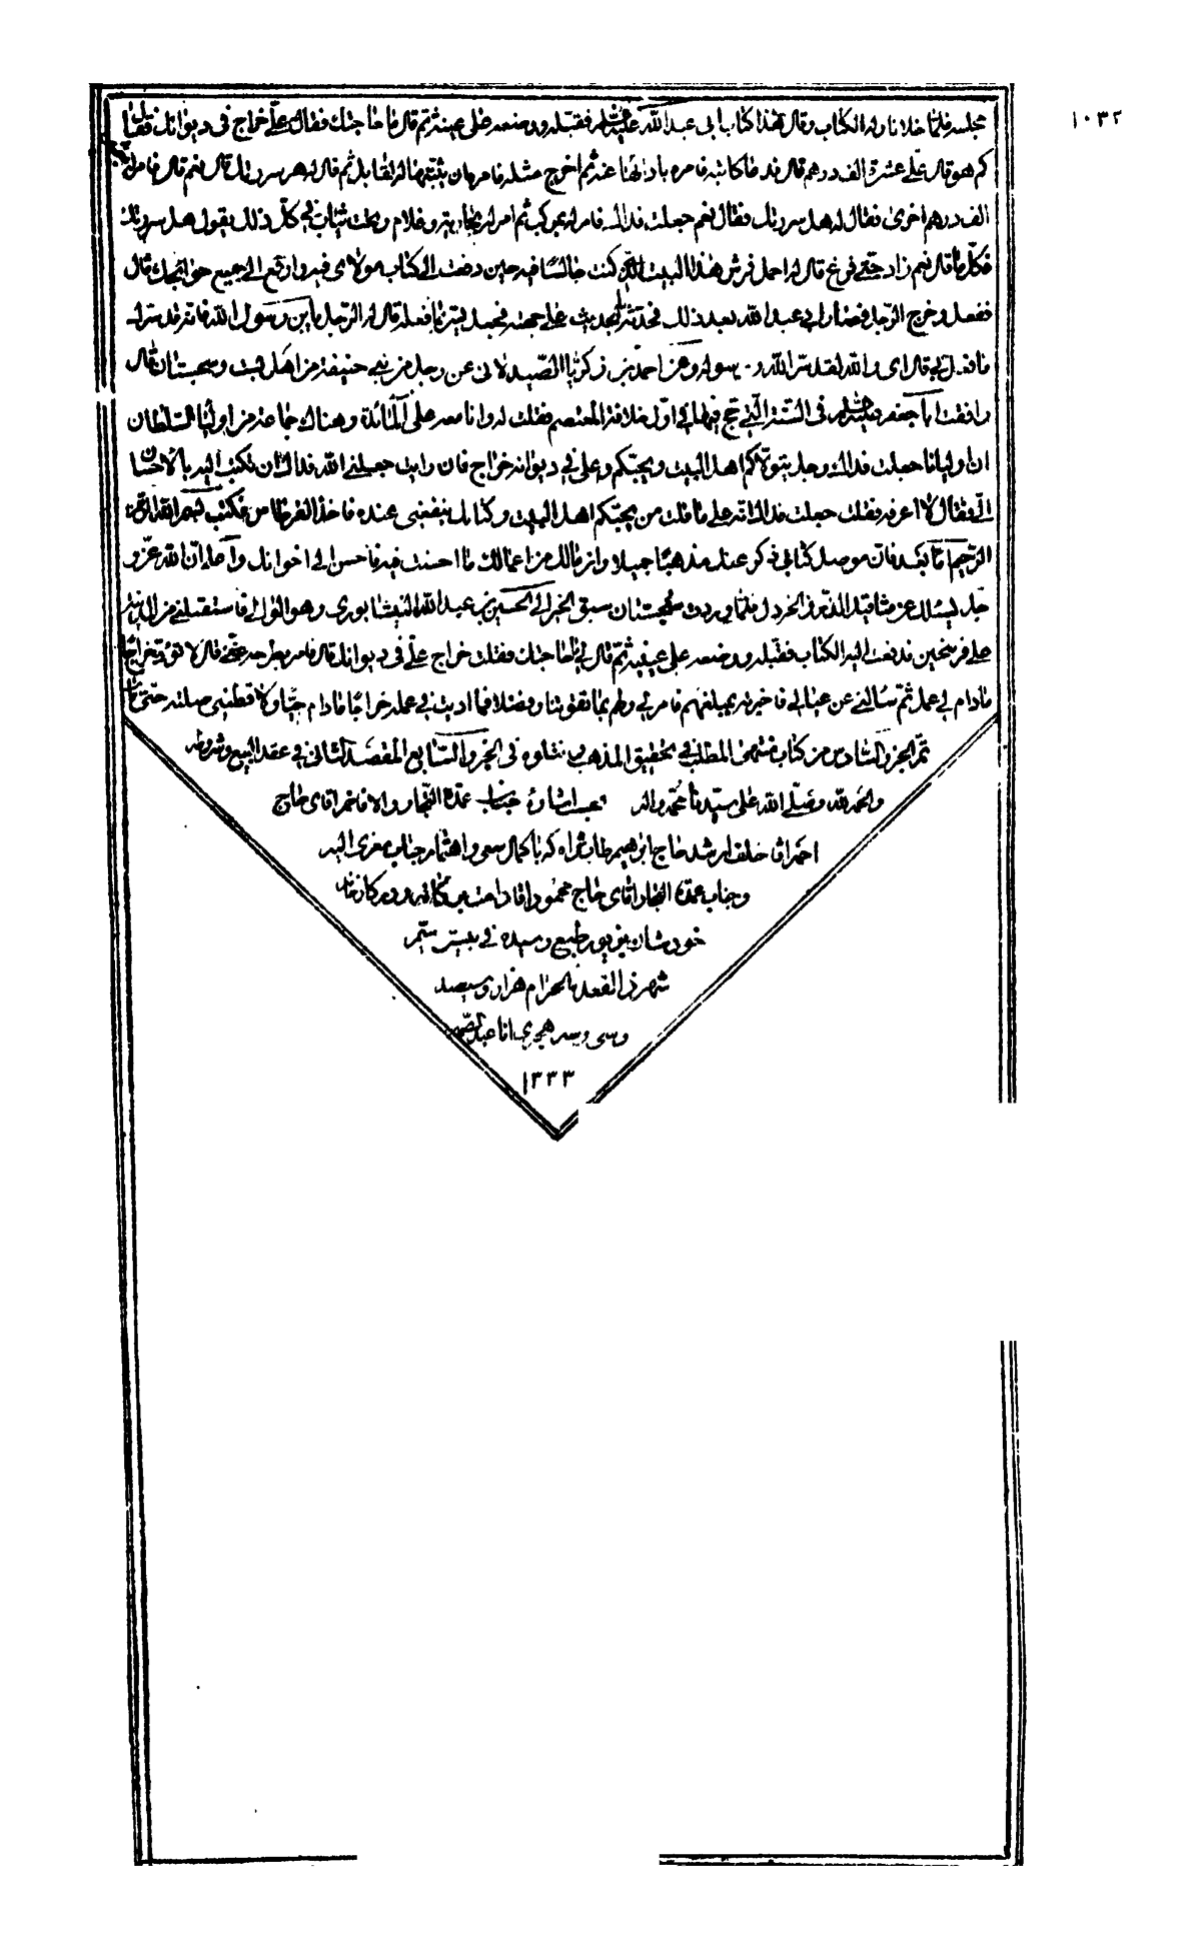 ١٠٣٢
مجلسه فلما خلا ناوله الكتاب وقال هذا كتاب ابي عبد الله عليه السلام فقبله ووضعه على عينيه ثم قال ما حاجتك فقال علي خراج في ديوانك فقال له
كم هو قال علي عشرة الف درهم قال فدعا كاتبه فامره بادائها عنه ثم اخرج مثله فامر ان يثبتها له لقابل ثم قال له هل سررتك قال نعم قال فامر له بعشرة
الف درهم اخرى فقال له هل سررتك فقال نعم جعلت فداك فامر له بمركب ثم امر له بجارية وغلام وتخت ثياب في كل ذلك يقول هل سررتك
فكلما قال نعم زاد حتى فرغ قال له احمل فرش هذا البيت الذي كنت جالسا فيه حين دفعت الى كتاب مولاي فيه وارفع الي جميع حوائجك قال
ففعل وخرج الرجل فصار الى ابي عبد الله بعد ذلك فحدثه بالحديث على جهته فجعل يستر بما فعله قال له الرجل يابن رسول الله فانه قد سرك
ما فعل بي قال اي والله لقد سر الله ورسوله وعن احمد بن زكريا الصيدلاني عن رجل من بني حنيفة من اهل بست وسجستان قال
رافقت ابا جعفر عليه السلام في السنة التي حج فيها في اول خلافة المعتصم فقلت له وانا معه على المائدة وهناك جماعة من اولياء السلطان
ان والينا جعلت فداك رجل يتولاكم اهل البيت ويحبكم وعلي في ديوانه خراج فان رايت جعلني الله فداك ان تكتب اليه بالاحسان
الي فقال لا اعرفه فقلت جعلت فداك انه على ما قلت من يحبكم اهل البيت وكتابك ينفعني عنده فاخذ القرطاس فكتب بسم الله الرحمن
الرحيم اما بعد فان موصل كتابي ذكر عنك مذهبا جميلا وان مالك من اعمالك ما احسنت فيه فاحسن الى اخوانك واعلم ان الله عز و
جل يسئلك عن مثاقيل الذر والخردل فلما وردت سجستان سبق الخبر الى الحسين بن عبد الله النيشابوري وهو الوالي فاستقبلني من المدينة
على فرسخين فدفعت اليه الكتاب فقبله ووضعه على عينيه ثم قال لي ما حاجتك فقلت خراج علي في ديوانك قال فامر بطرحه عني قال لا تؤد خراجا
مادام لي عمل ثم سالني عن عيالي فاخبرته بمبلغهم فامر لي ولهم بما تقوتنا وفضلا فما اديت في عمله خراجا مادام حيا ولا قطعني صلته حتى مات
تم الجزو السادس من كتاب منتهى المطلب في تحقيق المذهب يتلوه في الجزو السابع المقصد الثاني في عقد البيع وشروطه
والحمد لله وصلى الله على سيدنا محمد واله بحسب اشاره جناب عمدة التجار والافاخم اقاى حاج
احمد اقا خلف ارشد حاج ابوهيم طاب ثراه كه با كمال سعى واهتمام جناب معزى اليه
وجناب عمده التجار اقاى حاج محمود اقا دامت بركاتهم در كارخانه
خودشان بزيور طبع رسيده في بيستم
شهر ذي القعدة الحرام هزار وسيصد
وسى وسه هجري انا
١٣٣٣